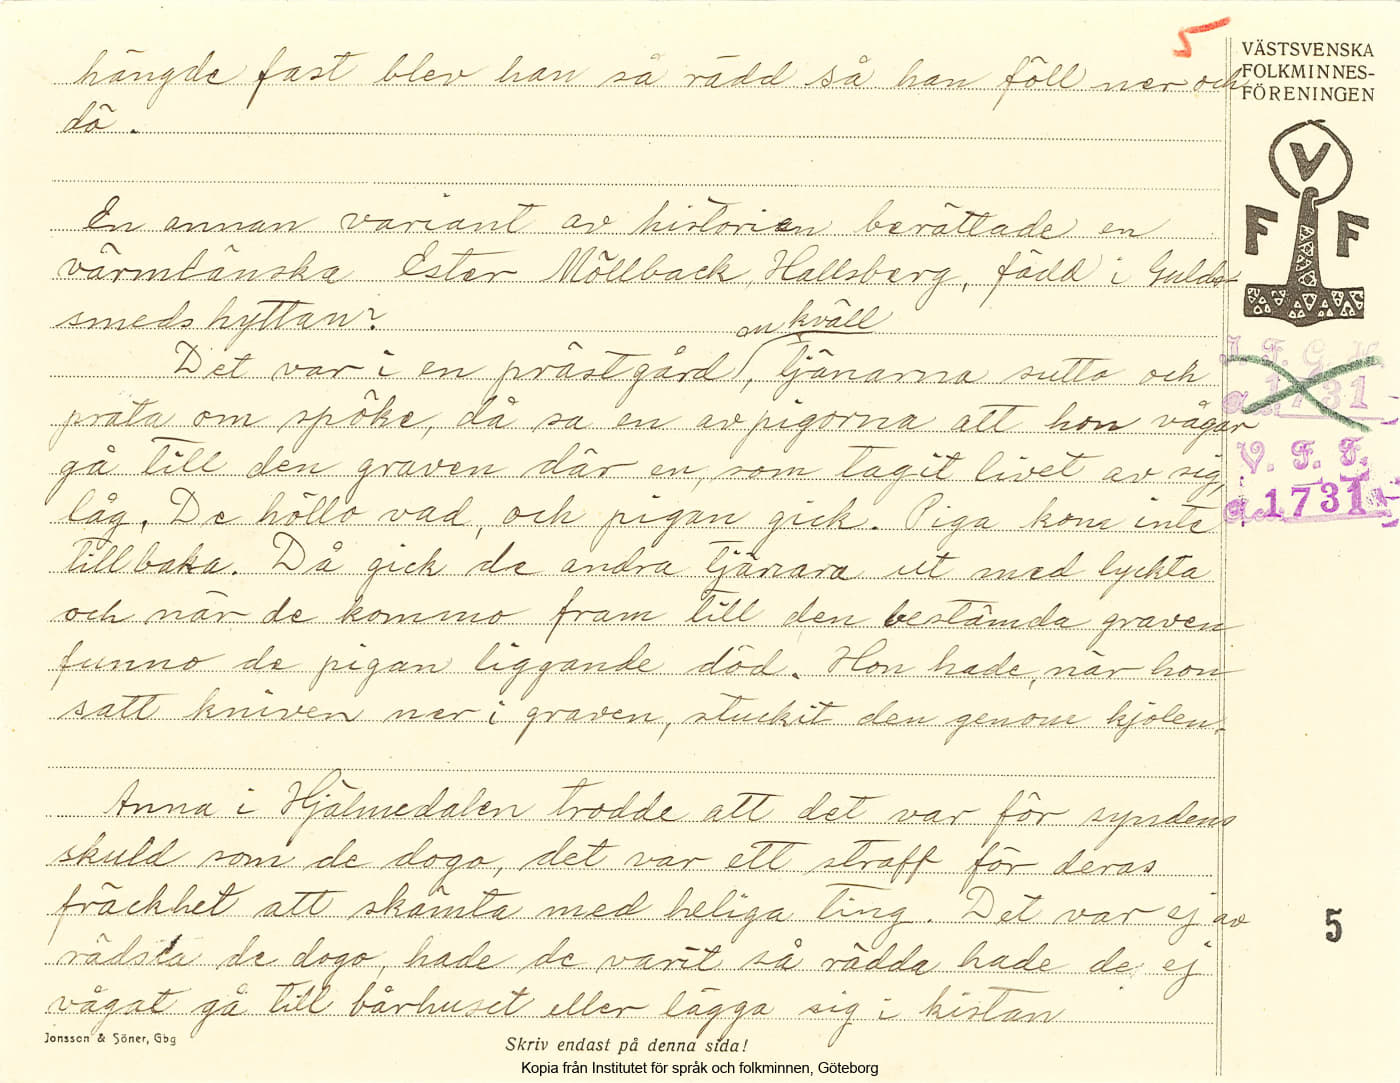 5
VÄSTSVENSKA
FOLKMINNES-
FÖRENINGEN
V
F F
hängde fast blev han så rädd så han föll ner och
dö.
En annan variant av historien berättade en
värmlänska Ester Möllback, Hallsberg, född i Gulds-
smedshyttan?
en kväll
Det var i en prästgård, tjänarna sutto och
prata om spöke, då sa en av pigorna att hon vågar
gå till den graven där en, som tagit livet av sig,
låg. De höllo vad, och pigan gick. Piga kom inte
tillbaka. Då gick de andra tjänara ut med lyckta
och när de kommo fram till den bestämda graven
funno de pigan liggande död. Hon hade, när hon
satt kniven ner i graven, stuckit den genom kjolen.
Anna i Hjälmedalen trodde att det var för syndens
skuld som de dogo, det var ett straff för deras
fräckhet att skämta med heliga ting. Det var ej av
rädsla de dogo, hade de varit så rädda hade de ej
vågat gå till bårhuset eller lägga sig i kistan
I. F. G. H.
1731
V. F. F.
1731
5
Jonsson & Söner, Gbg
Skriv endast på denna sida!
Kopia från Institutet för språk och folkminnen, Göteborg